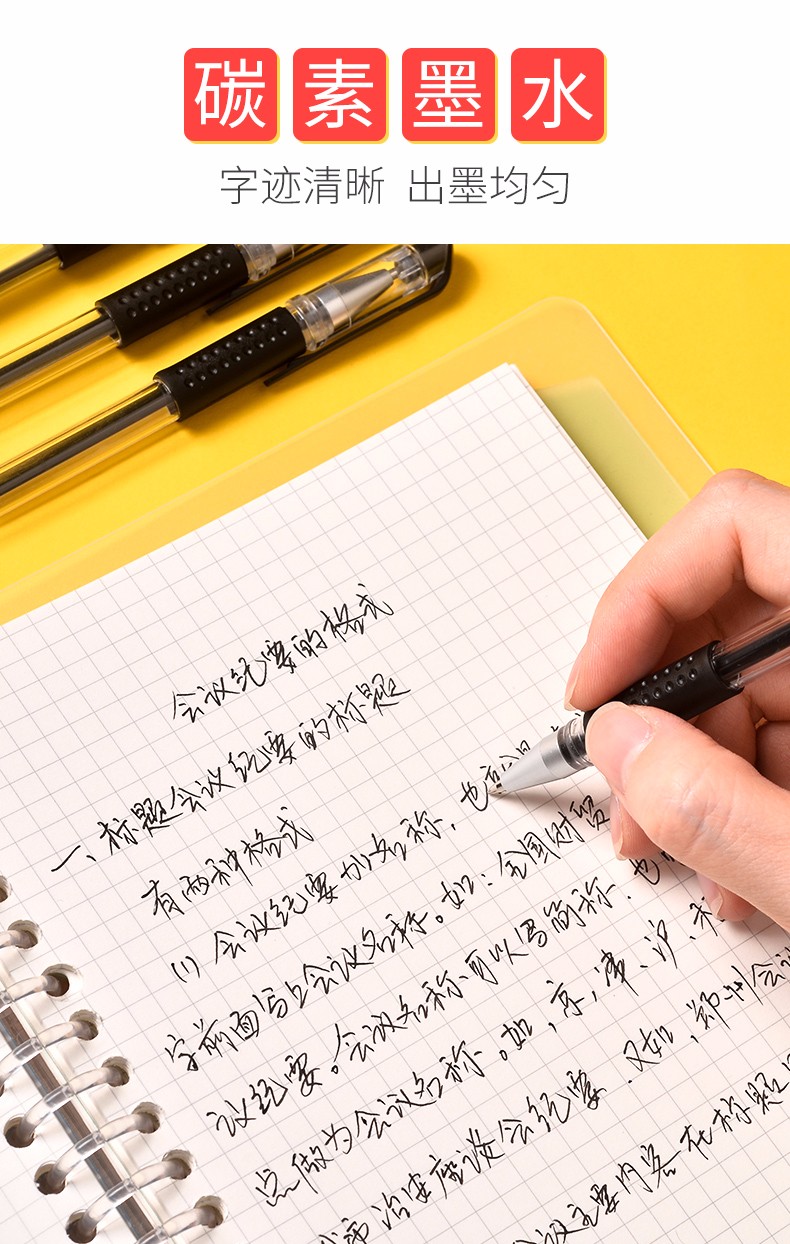 碳素墨水
字迹清晰 出墨均匀
会议纪要的格式
会议纪要的标题
一、标题会议纪要的标题
有两种格式
(1) 会议纪要加名称,也
字前面写上会议名称。如:全国财贸
议纪要。会议名称可以写简称,也
点做为会议名称。如,京,津、沪、
座谈会纪要,又如,郑州会议
主要内容在标题